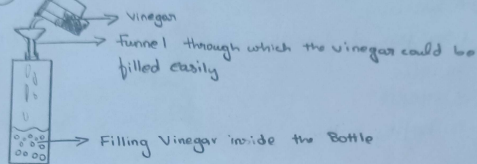 vinegar
funnel through which the vinegar could be
filled easily
Filling Vinegar inside the Bottle